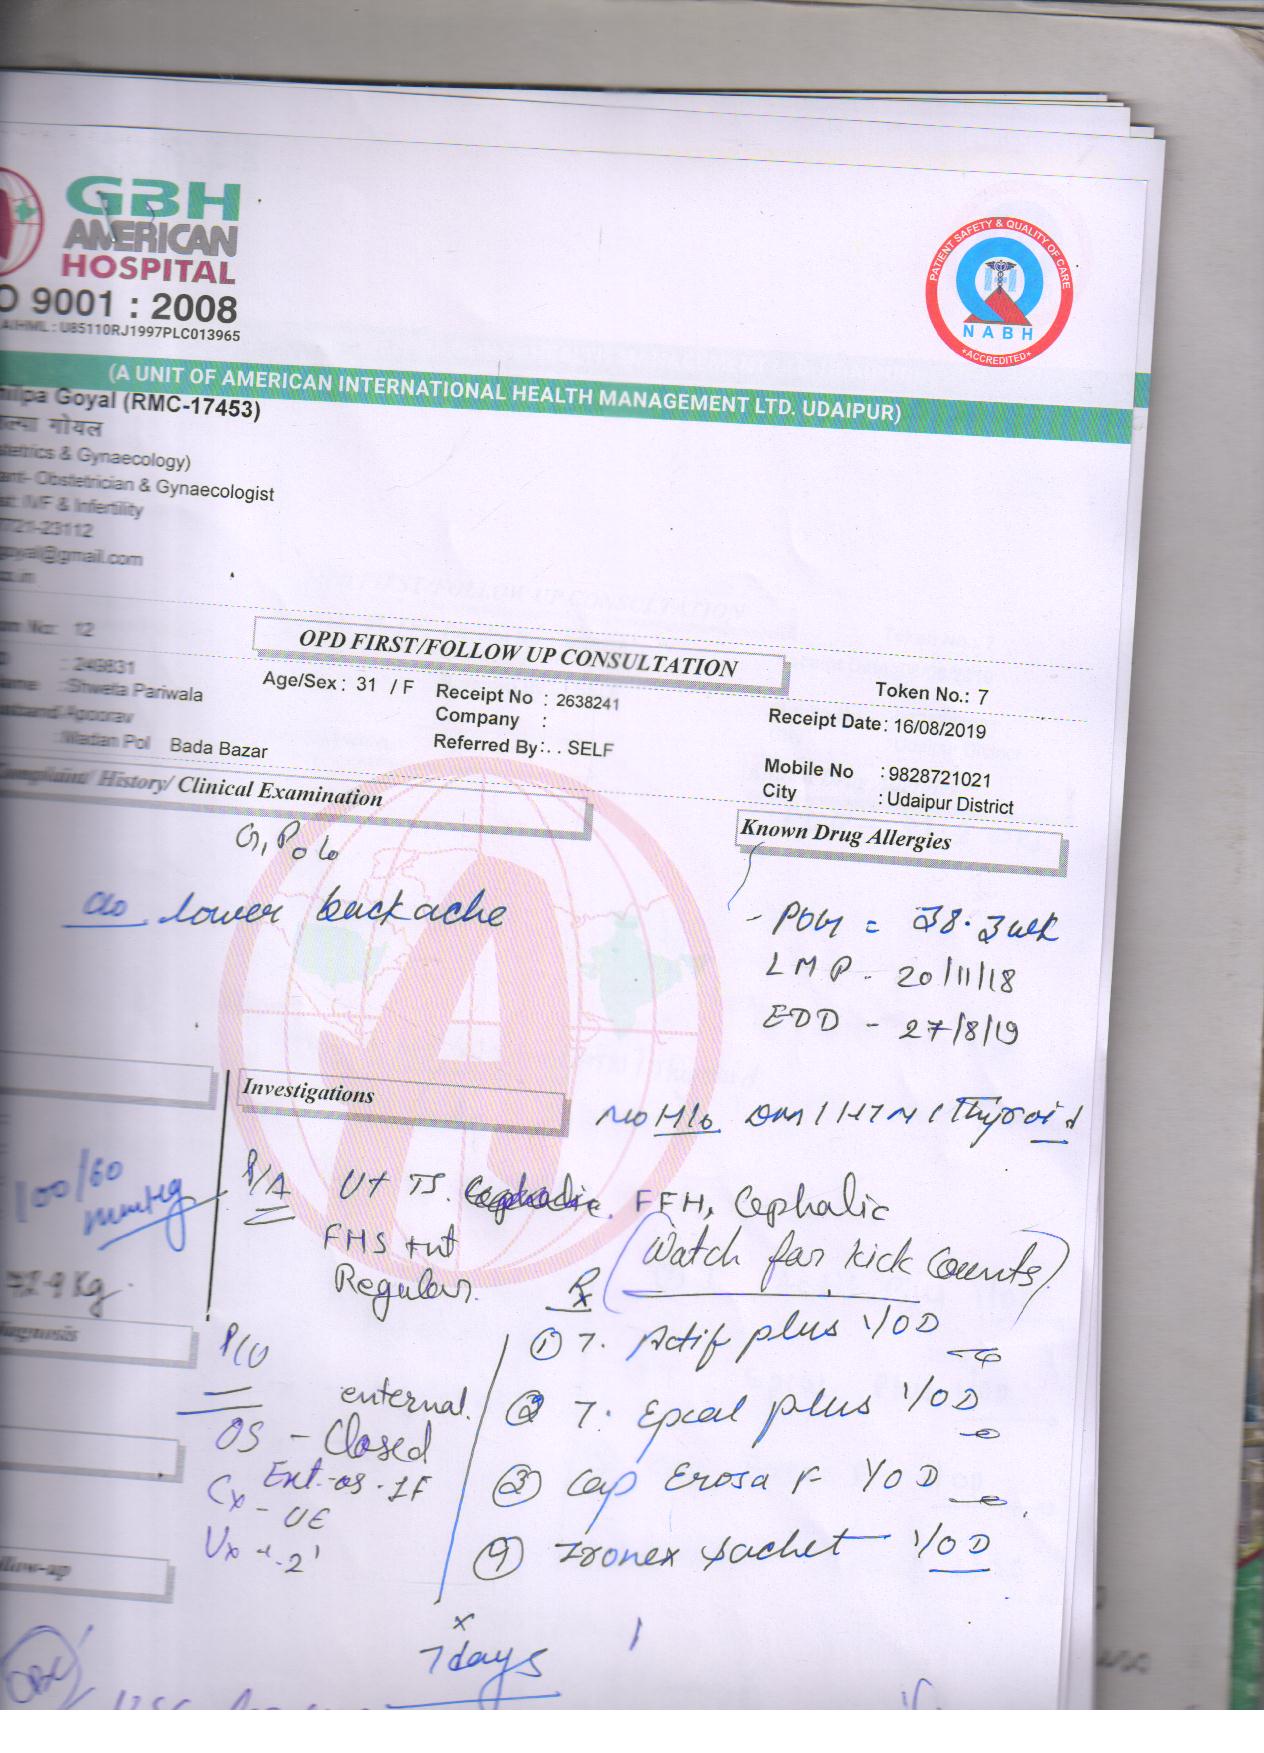 GBH
AMERICAN
HOSPITAL
O 9001 : 2008
AIHML : U85110RJ1997PLC013965
PATIENT SAFETY & QUALITY OF CARE
NABH
ACCREDITED
(A UNIT OF AMERICAN INTERNATIONAL HEALTH MANAGEMENT LTD. UDAIPUR)
hilpa Goyal (RMC-17453)
गोयल
stetrics & Gynaecology)
tant- Obstetrician & Gynaecologist
st: IVF & Infertility
7721-23112
goyal@gmail.com
om No: 12
OPD FIRST/FOLLOW UP CONSULTATION
Token No.: 7
: 249831
Age/Sex : 31 / F
Receipt No : 2638241
Receipt Date : 16/08/2019
ame : Shweta Pariwala
Company :
Apoorav
Referred By : . . SELF
Mobile No : 9828721021
: Madan Pol Bada Bazar
City : Udaipur District
Complaint/ History/ Clinical Examination
Known Drug Allergies
G1P0L0
c/o lower backache
- POG = 38.3 wk
LMP - 20/11/18
EDD - 27/8/19
Investigations
No H/o DM / HTN / Thyroid
100/60
mmHg
P/A Ut TS. Cephalic. FFH, Cephalic
FHS +nt
Regular.
(Watch for kick counts)
72.9 Kg.
Rx
iagnosis
P/V
① T. Actif plus 1/OD
internal
OS - Closed
② T. Epcal plus 1/OD
Ext. os - 1F
Cx - UE
③ Cap Erosa F 1/OD
Vx - -2
④ Ironex Sachet 1/OD
llow-up
x
7 days